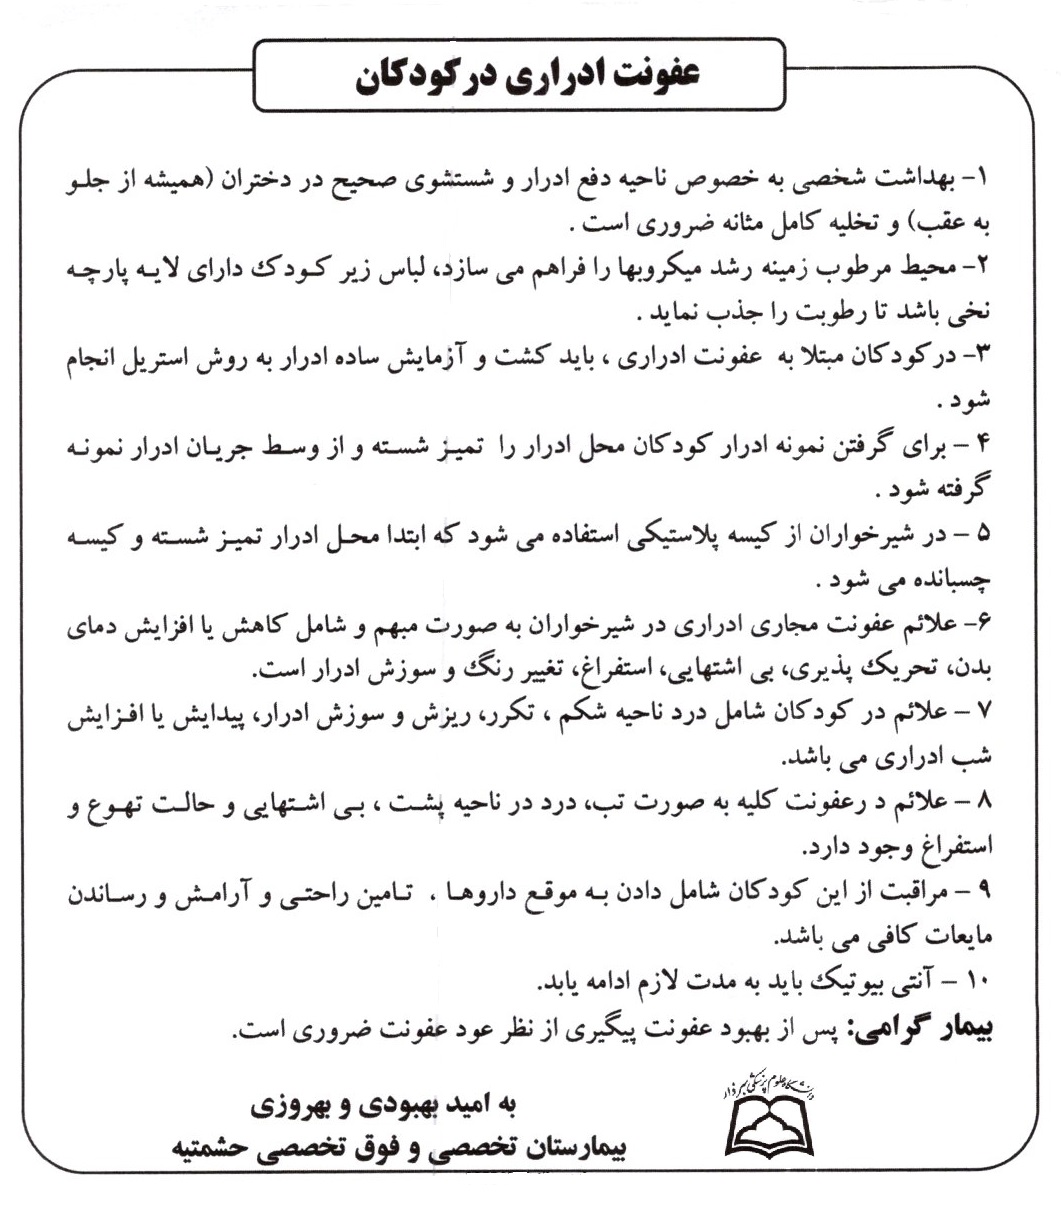 عفونت ادراری در کودکان
۱- بهداشت شخصی به خصوص ناحیه دفع ادرار و شستشوی صحیح در دختران (همیشه از جلو
به عقب) و تخلیه کامل مثانه ضروری است .
۲- محیط مرطوب زمینه رشد میکروبها را فراهم می سازد، لباس زیر کودک دارای لایه پارچه
نخی باشد تا رطوبت را جذب نماید .
۳- درکودکان مبتلا به عفونت ادراری ، باید کشت و آزمایش ساده ادرار به روش استریل انجام
شود .
۴ – برای گرفتن نمونه ادرار کودکان محل ادرار را تمیز شسته و از وسط جریان ادرار نمونه
گرفته شود .
۵ – در شیرخواران از کیسه پلاستیکی استفاده می شود که ابتدا محل ادرار تمیز شسته و کیسه
چسبانده می شود .
۶- علائم عفونت مجاری ادراری در شیرخواران به صورت مبهم و شامل کاهش یا افزایش دمای
بدن، تحریک پذیری، بی اشتهایی، استفراغ، تغییر رنگ و سوزش ادرار است.
۷ – علائم در کودکان شامل درد ناحیه شکم ، تکرر، ریزش و سوزش ادرار، پیدایش یا افزایش
شب ادراری می باشد.
۸ – علائم د رعفونت کلیه به صورت تب، درد در ناحیه پشت ، بی اشتهایی و حالت تهوع و
استفراغ وجود دارد.
۹ – مراقبت از این کودکان شامل دادن به موقع داروها ، تامین راحتی و آرامش و رساندن
مایعات کافی می باشد.
۱۰ – آنتی بیوتیک باید به مدت لازم ادامه یابد.
بیمار گرامی: پس از بهبود عفونت پیگیری از نظر عود عفونت ضروری است.
دانشگاه علوم پزشکی سبزوار
به امید بهبودی و بهروزی
بیمارستان تخصصی و فوق تخصصی حشمتیه